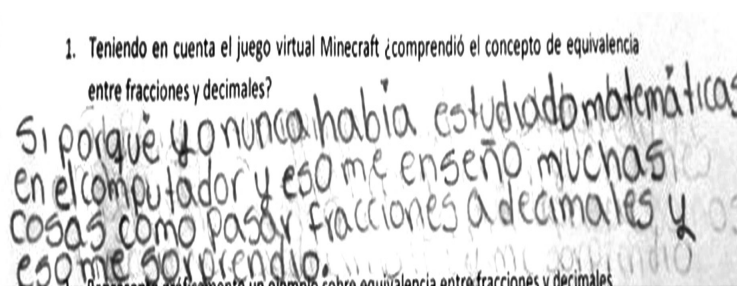 1. Teniendo en cuenta el juego virtual Minecraft ¿comprendió el concepto de equivalencia
entre fracciones y decimales?
Si porqué yo nunca había estudiado matemáticas
en el computador y eso me enseño muchas
cosas como pasar fracciones a decimales y
eso me sorprendio.
sobre equivalencia entre fracciones y decimales